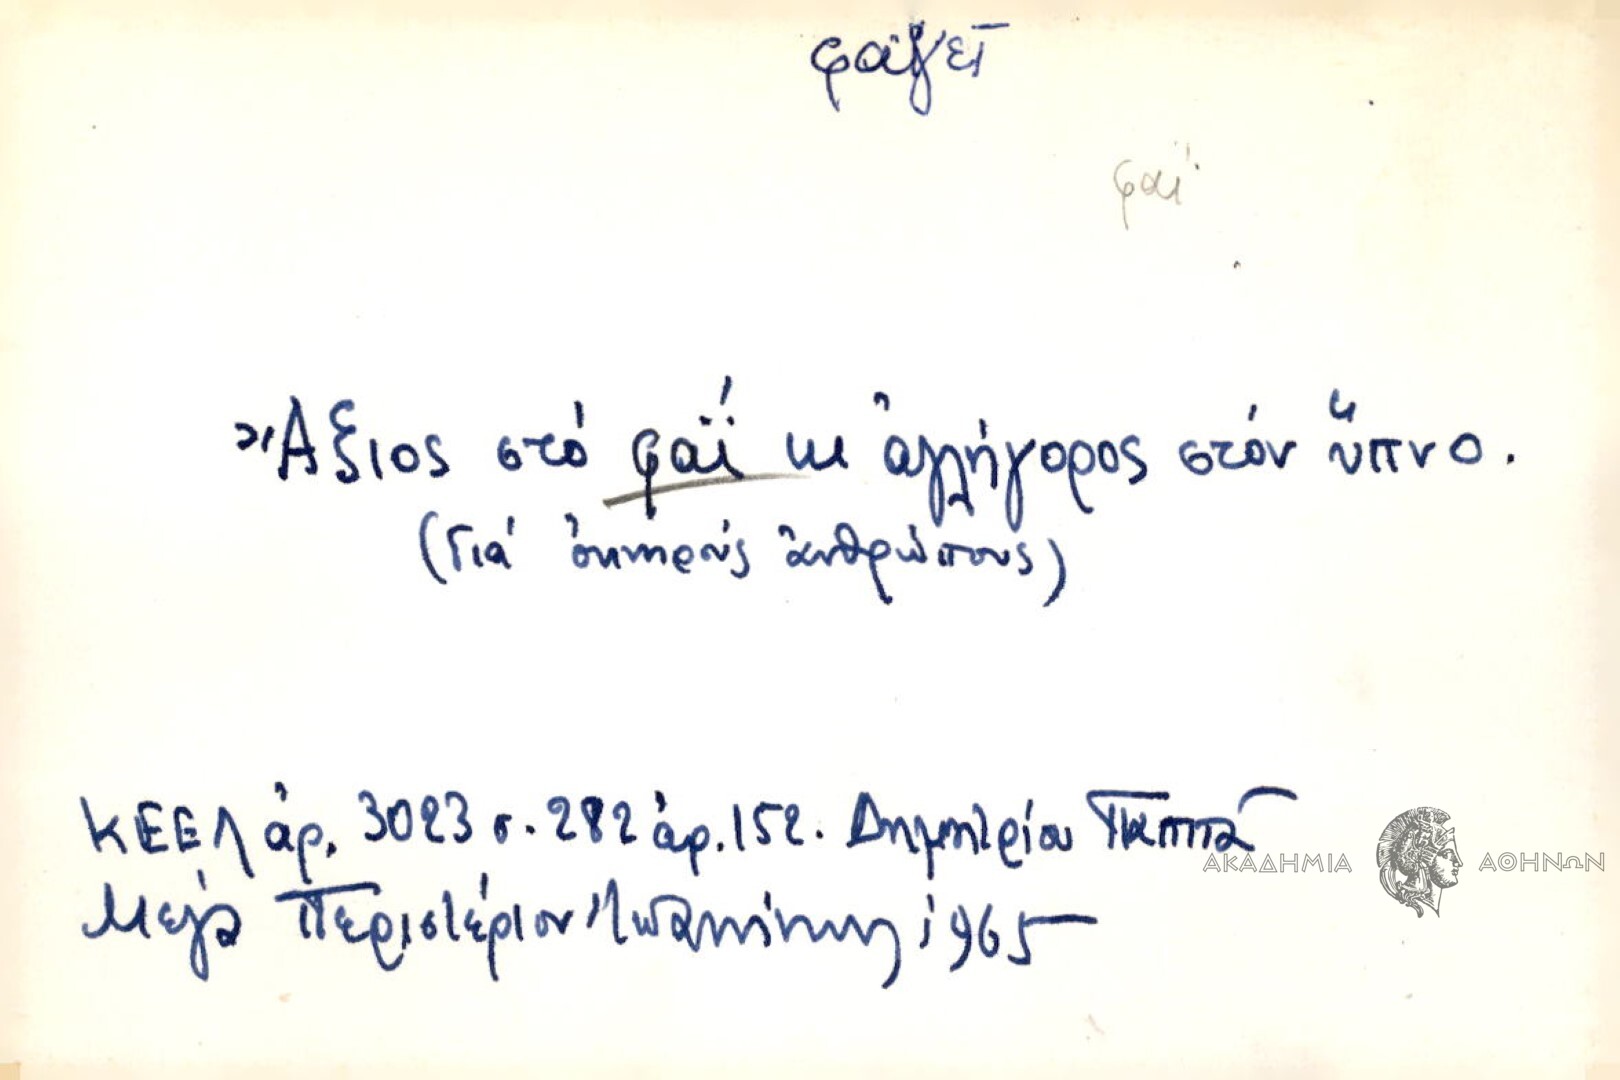 φαγεῖ
φαΐ
Ἄξιος στό φαΐ κι ἀλλήγορος στόν ὕπνο.
(Γιά ὀκνηρούς ἀνθρώπους)
ΚΕΕΛ ἀρ. 3023 σ. 282 ἀρ. 152. Δημητρίου Παππᾶ
Μεγα Περιστέριον Ἰωαννίνων 1965
ΑΚΑΔΗΜΙΑ ΑΘΗΝΩΝ